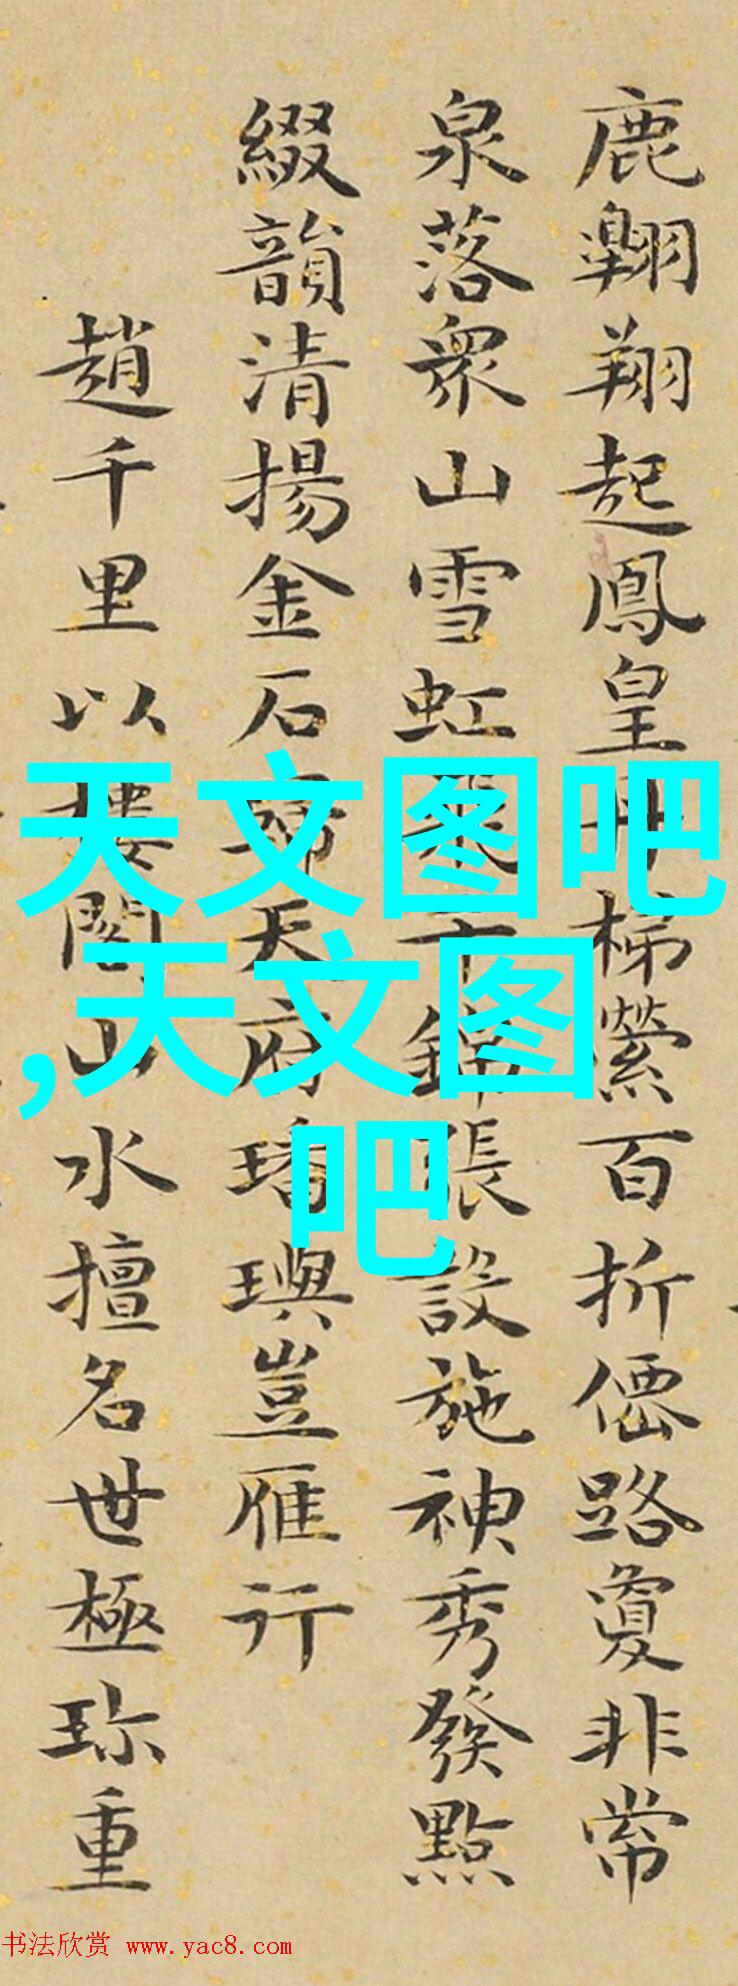 鹿翱翔起鳳皇丹梯縈百折僊路敻非常
泉落衆山雪虹飛千錦張設施神秀發點
綴韻清揚金石歸天府璠璵豈雁行
趙千里以樓閣山水擅名世極珎重
天文图吧
,天文图
吧
书法欣赏 www.yac8.com